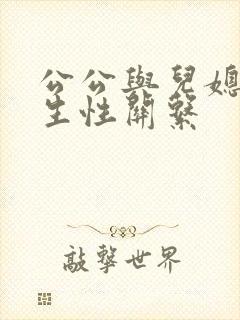 公公與兒媳
生性關系
敲擊世界